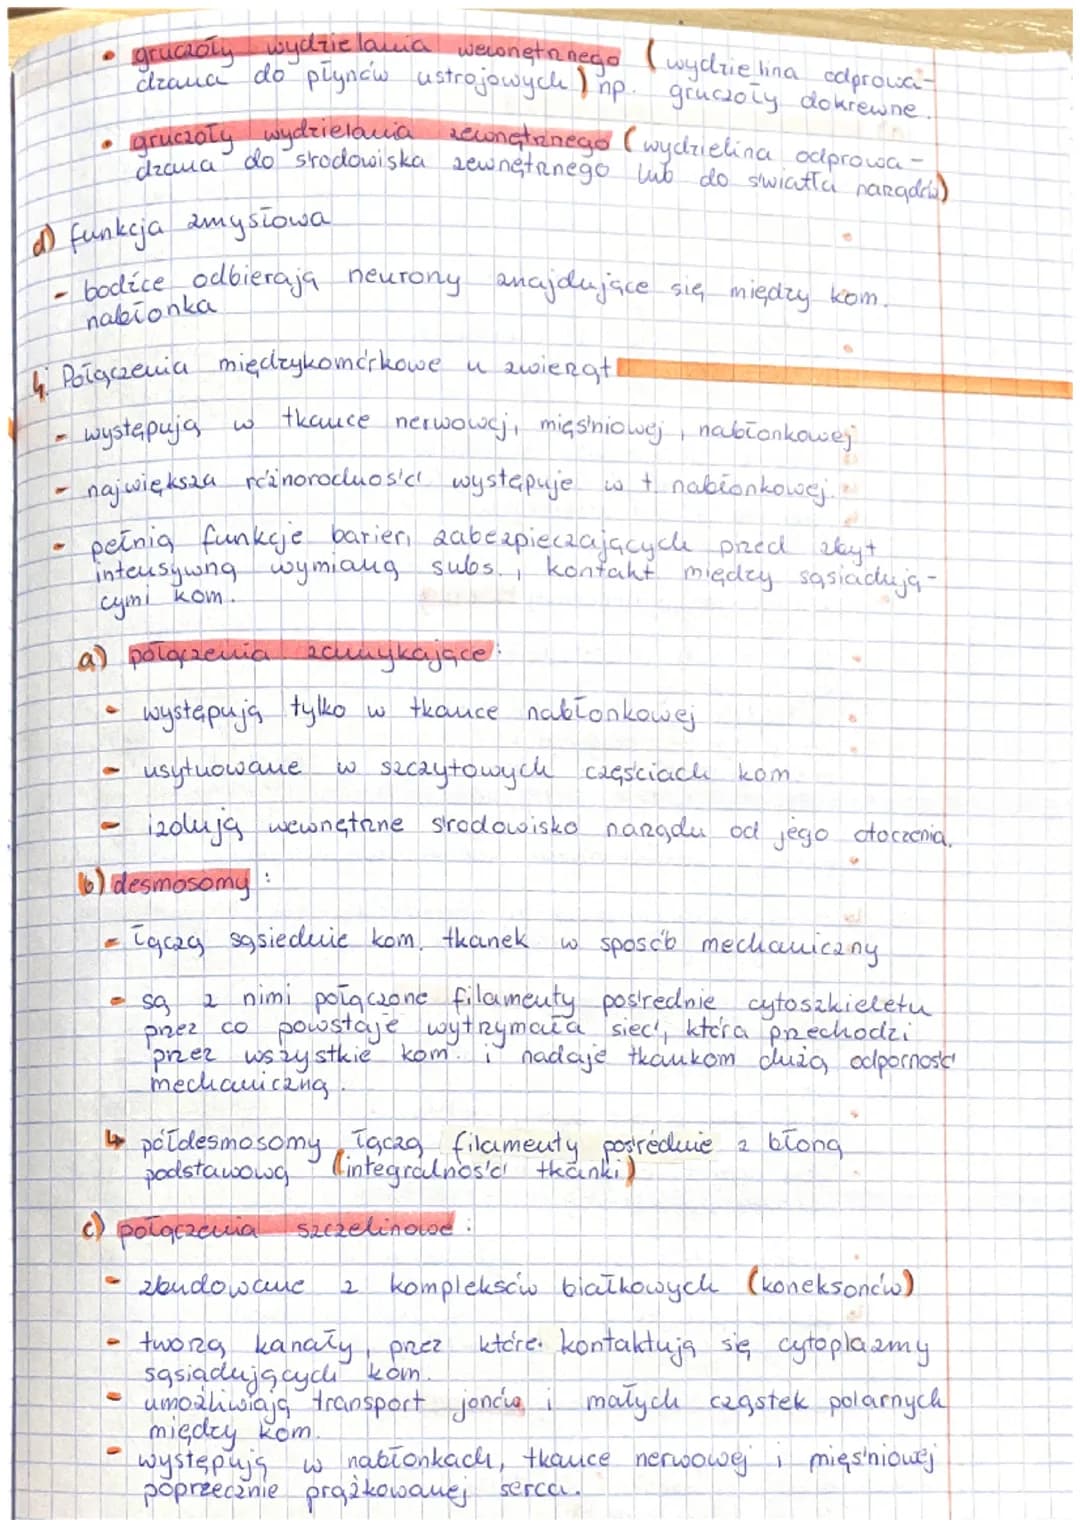 • gruczoły wydzielania wewnętrznego (wydzielina odprowa-
dzana do płynów ustrojowych) np. gruczoły dokrewne.
• gruczoły wydzielania zewnętrznego (wydzielina odprowa-
dzana do środowiska zewnętrznego lub do światła narządów)
d) funkcja zmysłowa
- bodźce odbierają neurony znajdujące się między kom.
nabłonka
4. Połączenia międzykomórkowe u zwierząt
- występują w tkance nerwowej, mięśniowej, nabłonkowej
- największa różnorodność występuje w t. nabłonkowej.
- pełnią funkcje barier, zabezpieczających przed zbyt
intensywną wymianą subs., kontakt między sąsiadują-
cymi kom.
a) połączenia zamykające:
- występują tylko w tkance nabłonkowej
- usytuowane w szczytowych częściach kom
- izolują wewnętrzne środowisko narządu od jego otoczenia.
b) desmosomy:
- łączą sąsiednie kom. tkanek w sposób mechaniczny
- są z nimi połączone filamenty pośrednie cytoszkieletu
przez co powstaje wytrzymała sieć, która przechodzi
przez wszystkie kom. i nadaje tkankom dużą odporność
mechaniczną.
↳ półdesmosomy łączą filamenty pośrednie z błoną
podstawową (integralność tkanki)
c) połączenia szczelinowe:
- zbudowane z kompleksów białkowych (koneksonów)
- tworzą kanały, przez które kontaktują się cytoplazmy
sąsiadujących kom.
- umożliwiają transport jonów i małych cząstek polarnych
między kom.
- występują w nabłonkach, tkance nerwowej i mięśniowej
poprzecznie prążkowanej serca.